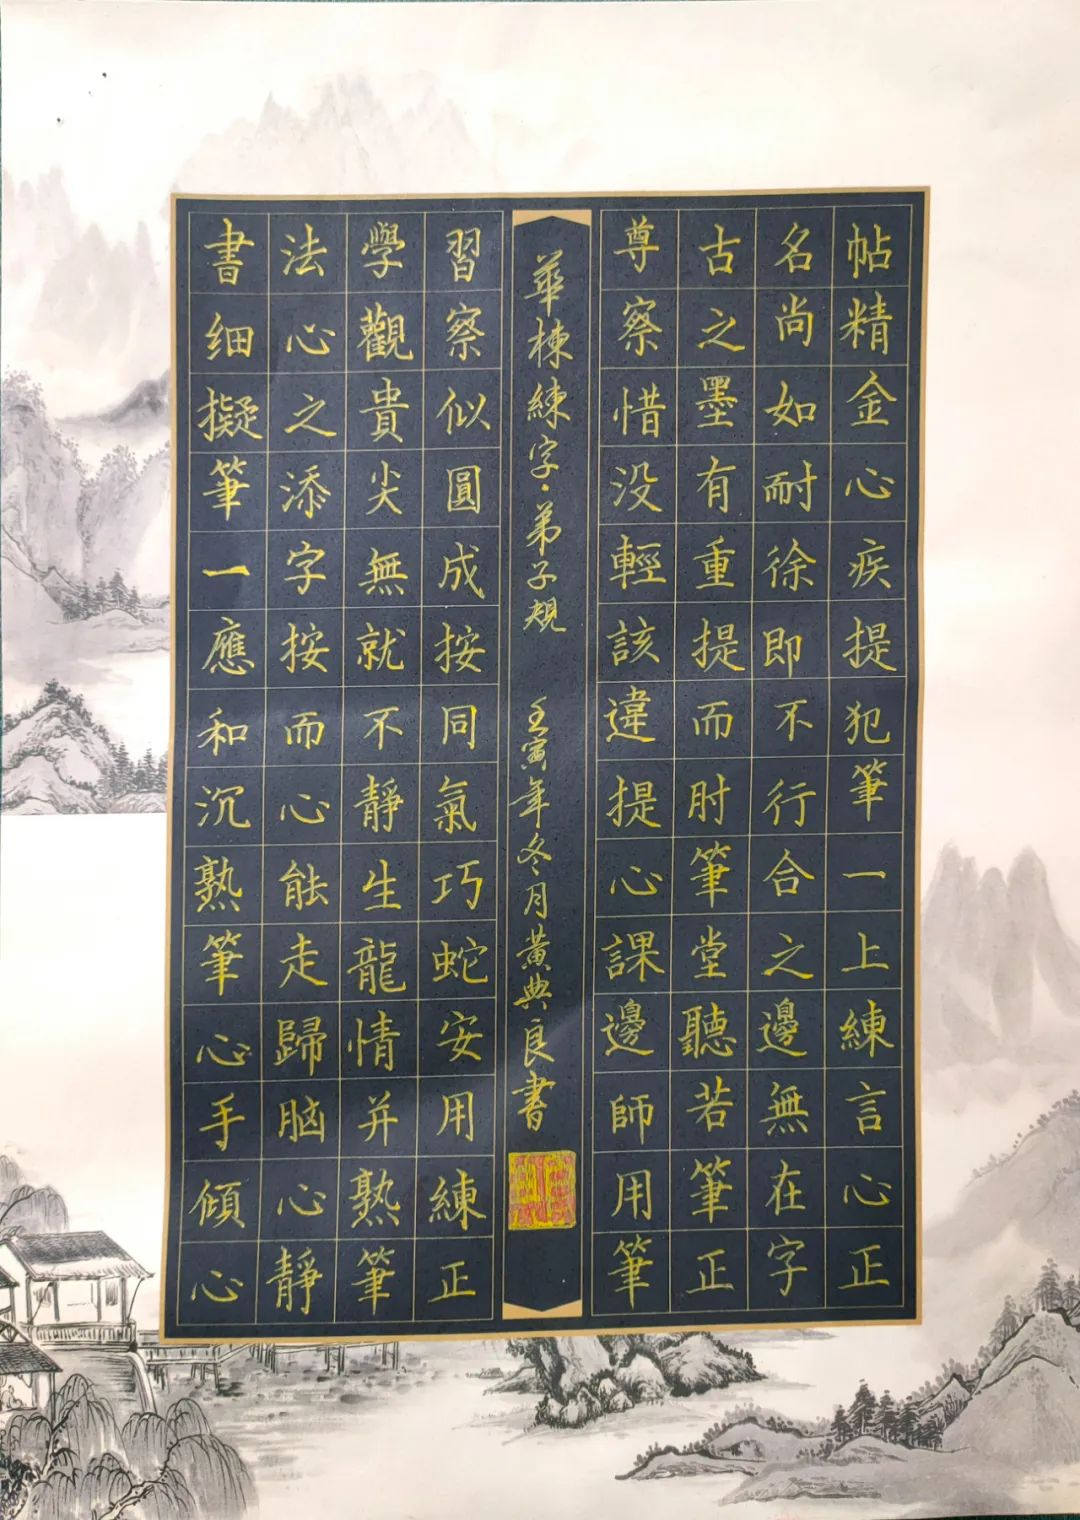 書法學習尊古名帖
細心觀察察之尚精
擬之貴似惜墨如金
筆添尖圓没有耐心
一字無成輕重徐疾
應按就按該提即提
和而不同違而不犯
沉心靜氣提肘行筆
熟能生巧心筆合一
筆走龍蛇課堂之上
心歸情安邊聽邊練
手脑并用師若無言
傾心熟練用筆在心
心靜筆正筆正字正
華棟練字·弟子規 壬寅年冬月黃典良書